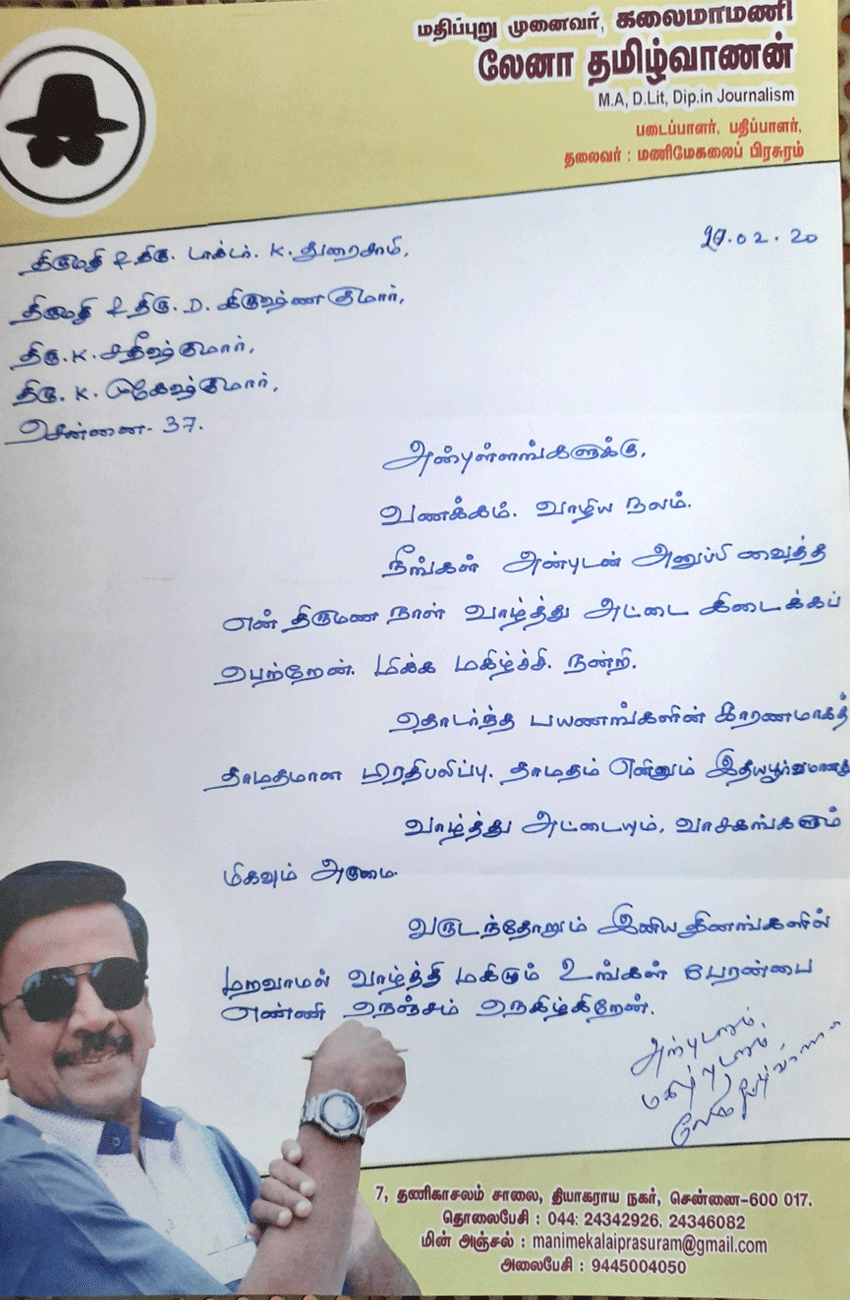 மதிப்புறு முனைவர், கலைமாமணி
லேனா தமிழ்வாணன்
M.A, D.Lit, Dip.in Journalism
படைப்பாளர், பதிப்பாளர்,
தலைவர் : மணிமேகலைப் பிரசுரம்
29.02.20
திருமதி & திரு. டாக்டர். K. துரைசாமி,
திருமதி & திரு. D. கிருஷ்ணகுமார்,
திரு. K. சதீஷ்குமார்,
திரு. K. முகேஷ்குமார்,
சென்னை - 37.
அன்புள்ளங்களுக்கு,
வணக்கம். வாழிய நலம்.
நீங்கள் அன்புடன் அனுப்பி வைத்த
என் திருமண நாள் வாழ்த்து அட்டை கிடைக்கப்
பெற்றேன். மிக்க மகிழ்ச்சி. நன்றி.
தொடர்ந்த பயணங்களின் காரணமாகத்
தாமதமான பிரதிபலிப்பு. தாமதம் எனினும் இதயபூர்வமானது
வாழ்த்து அட்டையும், வாசகங்களும்
மிகவும் அருமை.
வருடந்தோறும் இனிய தினங்களில்
மறவாமல் வாழ்த்தி மகிழும் உங்கள் பேரன்பை
எண்ணி நெஞ்சம் நெகிழ்கிறேன்.
அன்புடனும்,
மகிழ்வுடனும்,
லேனா தமிழ்வாணன்
7, தணிகாசலம் சாலை, தியாகராய நகர், சென்னை-600 017.
தொலைபேசி : 044: 24342926, 24346082
மின் அஞ்சல் : manimekalaiprasuram@gmail.com
அலைபேசி : 9445004050